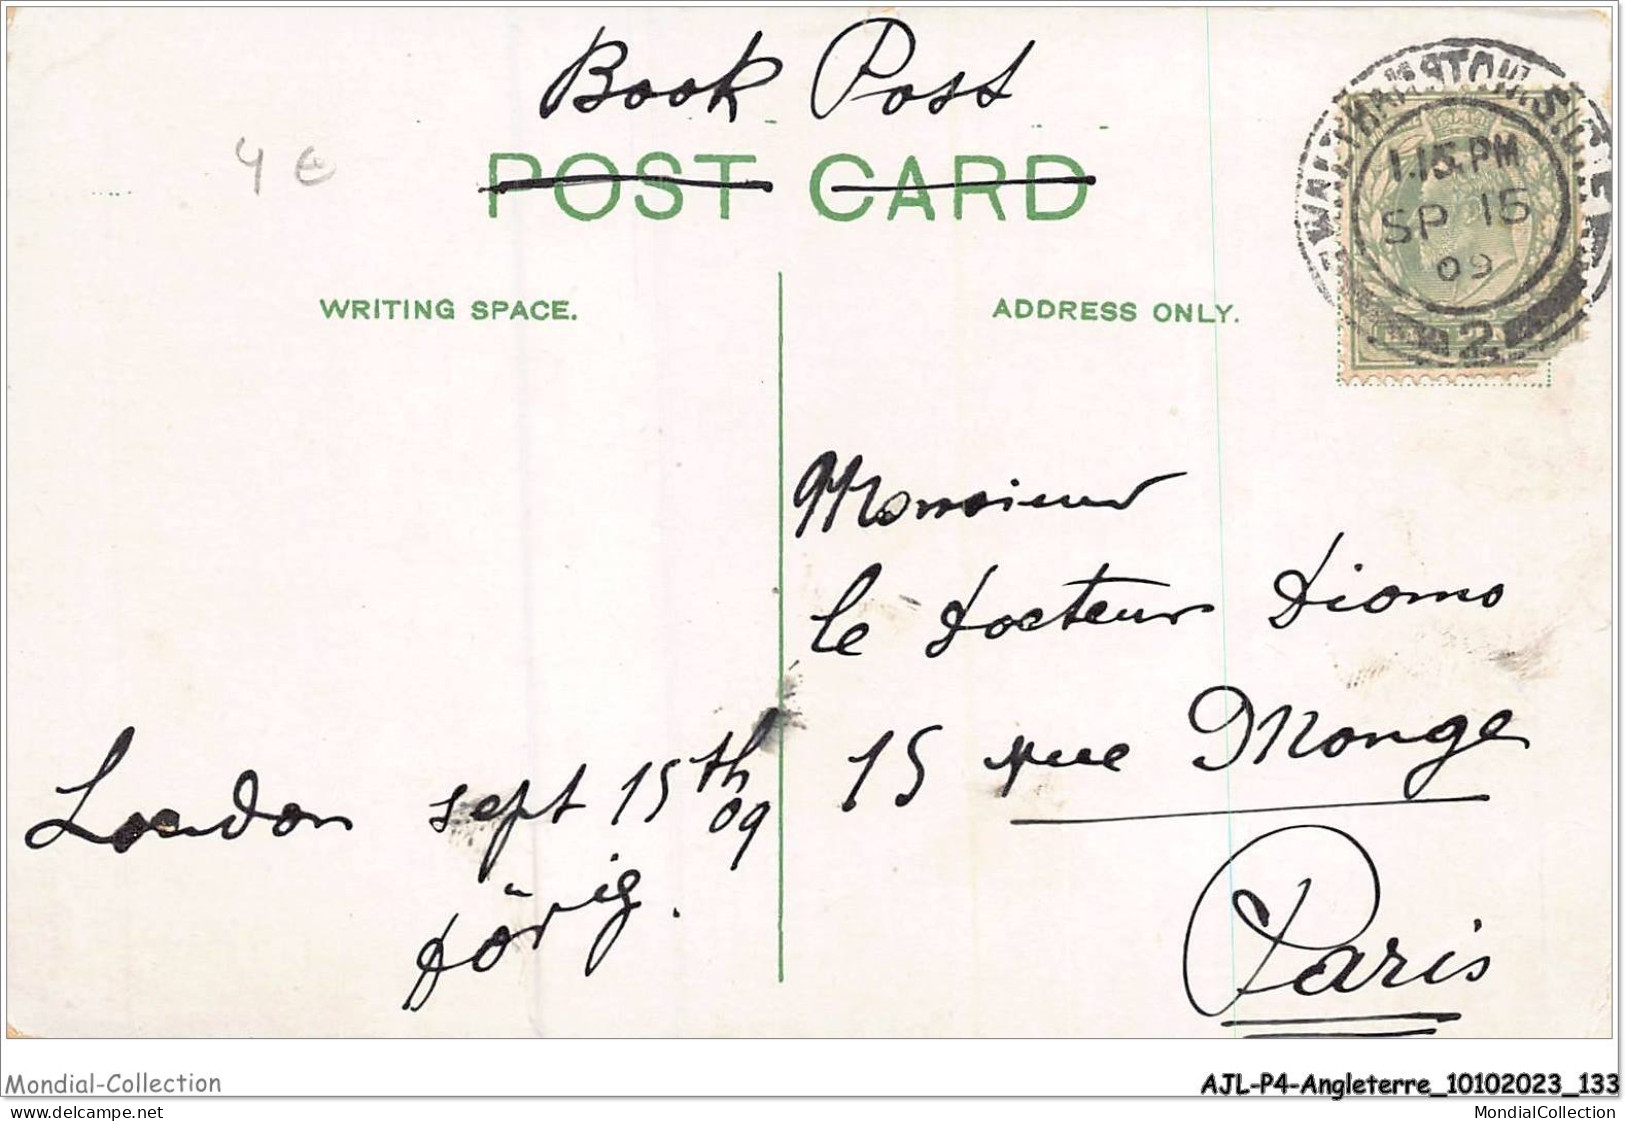 Book Post
4 €
POST CARD
WRITING SPACE.
ADDRESS ONLY.
WALTHAMSTOW S.O.
1.15.PM
SP 15
09
2
Monsieur
le Docteur Diomo
15 rue Monge
Paris
London sept 15th 09
Dörig.
Mondial-Collection
AJL-P4-Angleterre_10102023_133
delcampe.net
MondialCollection